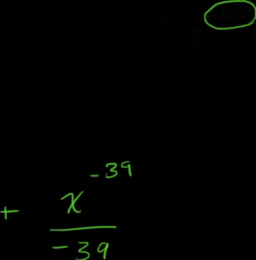 + x^-39 / -39